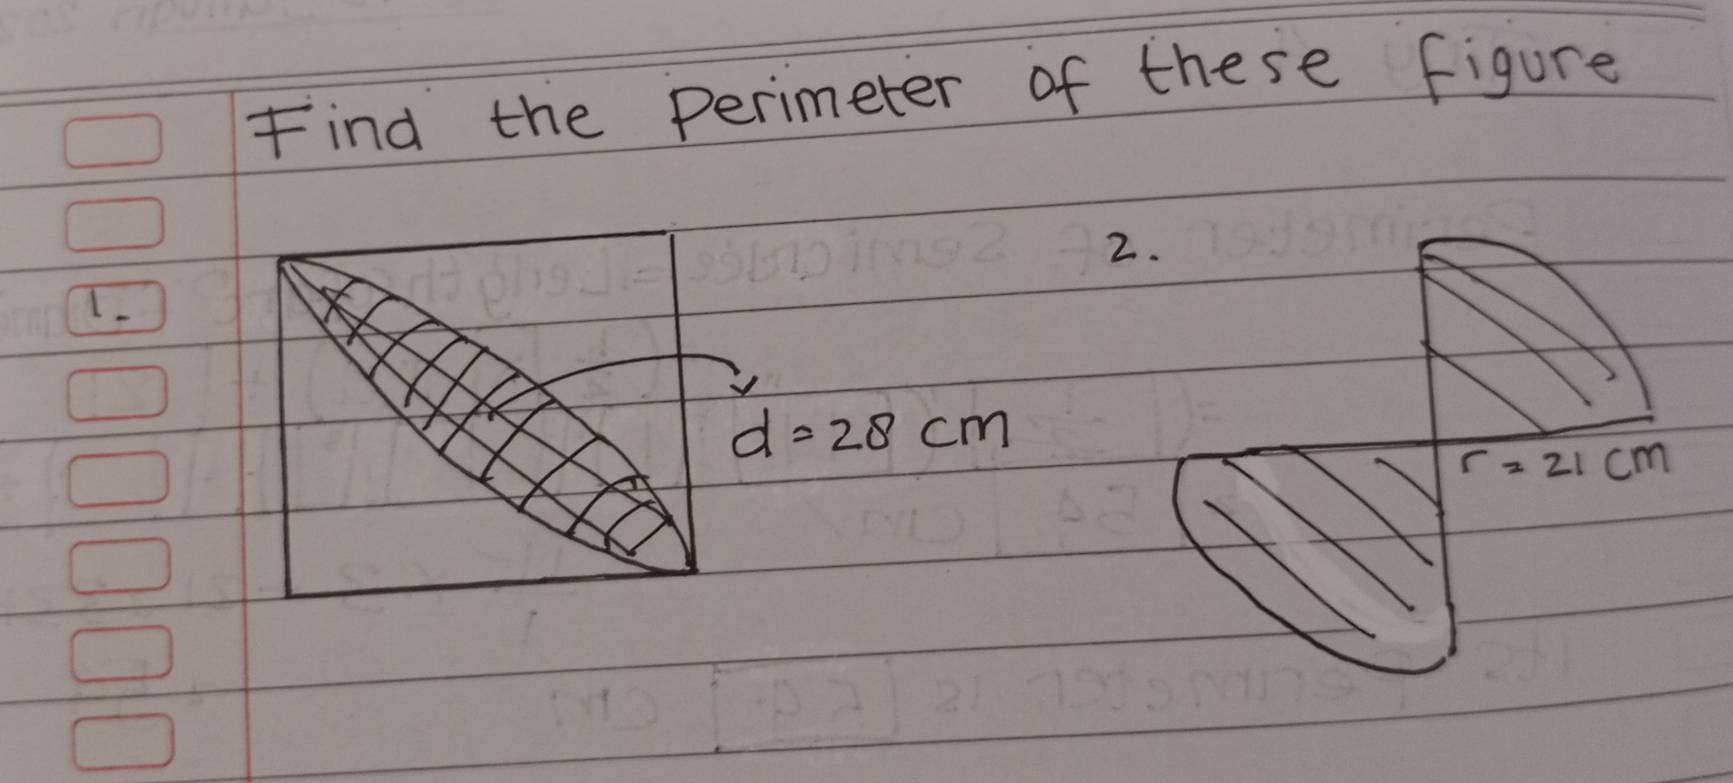 Find the Perimeter of these figure
1.
2.
d = 28 cm
r = 21 cm